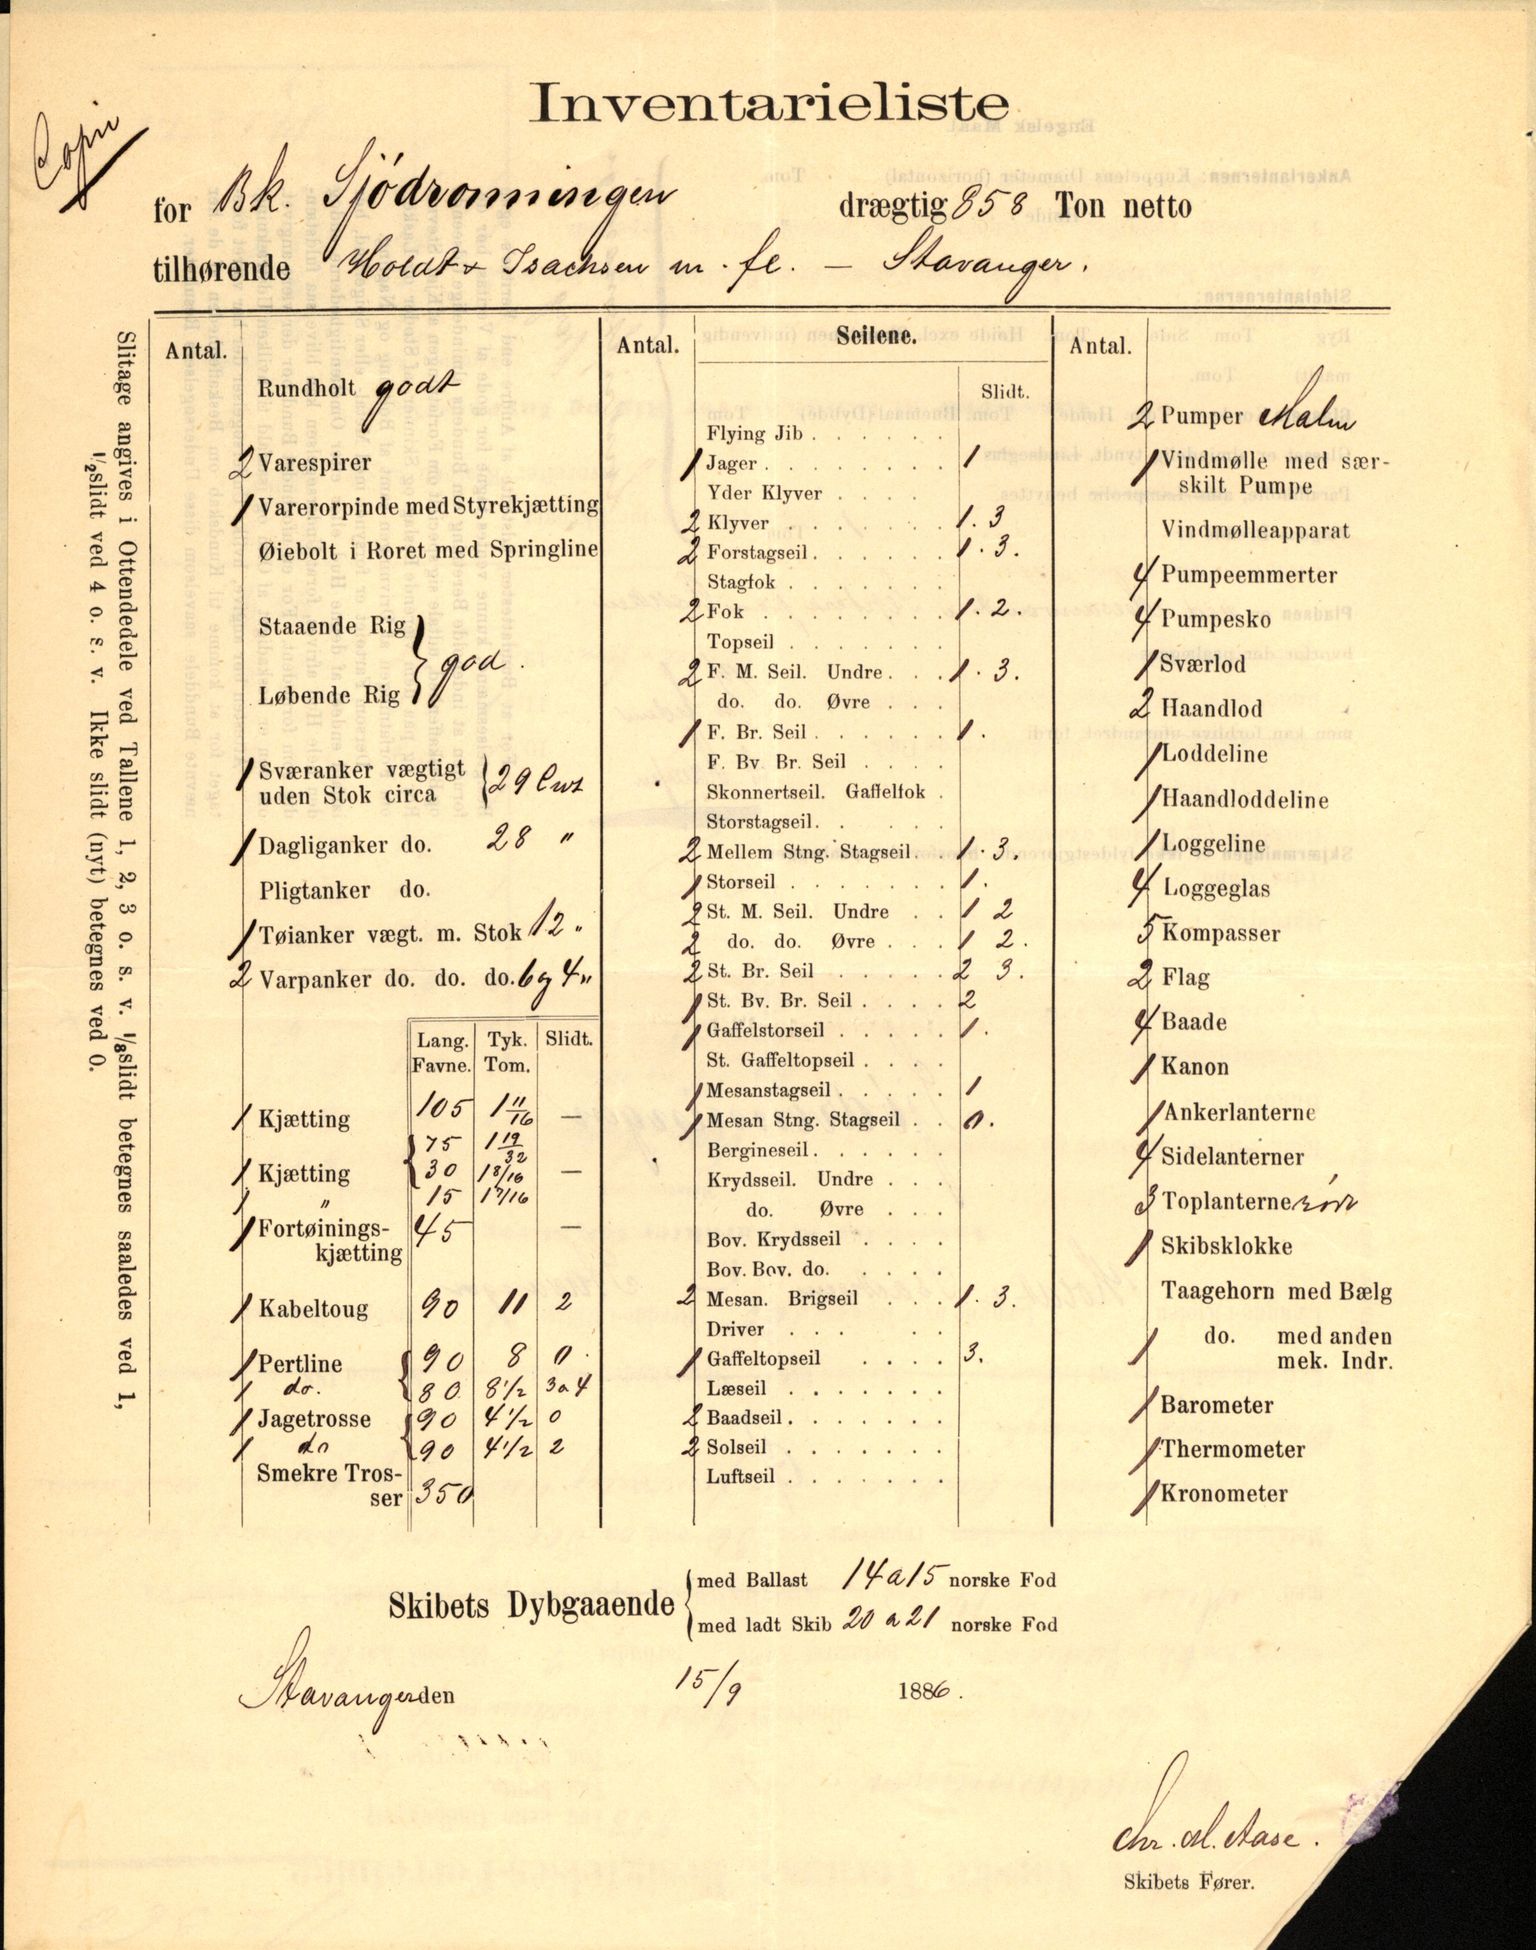 Copi
Inventarieliste
for Bk. Sjödronningen drægtig 858 Ton netto
tilhørende Holdt & Isachsen m. fl. — Stavanger.
Slitage angives i Ottendedele ved Tallene 1, 2, 3 o. s. v. 1/8 slidt betegnes saaledes ved 1,
1/2 slidt ved 4 o. s. v. Ikke slidt (nyt) betegnes ved 0.
Antal.
Rundholt godt
2 Varespirer
1 Varerorpinde med Styrekjætting
Øiebolt i Roret med Springline
Staaende Rig
god.
Løbende Rig
1 Sværanker vægtigt
uden Stok circa 29 Cwt
1 Dagliganker do. 28 "
Pligtanker do.
1 Tøianker vægt. m. Stok 12 "
2 Varpanker do. do. do. 6 og 4 "
Lang. Tyk. Slidt.
Favne. Tom.
1 Kjætting 105 1 11/16 —
75 1 19/32
1 Kjætting 30 1 8/16 —
1 " 15 1 7/16
1 Fortøinings- 45 —
kjætting
1 Kabeltoug 90 11 2
1 Pertline 90 8 0
1 do. 80 8 1/2 3 a 4
1 Jagetrosse 90 4 1/2 0
1 do 90 4 1/2 2
Smekre Tros-
ser 350
Antal. Seilene.
Slidt.
Flying Jib . . . . .
1 Jager . . . . . . . 1
Yder Klyver . . . .
2 Klyver . . . . . . 1. 3
2 Forstagseil . . . . . 1. 3.
Stagfok . . . . . . .
2 Fok . . . . . . . 1. 2.
Topseil . . . . . . .
2 F. M. Seil. Undre . . . 1. 3.
do. do. Øvre . . .
1 F. Br. Seil . . . . . 1.
F. Bv. Br. Seil . . . .
Skonnertseil. Gaffelfok .
Storstagseil. . . . .
2 Mellem Stng. Stagseil. . 1. 3.
1 Storseil . . . . . . . 1.
2 St. M. Seil. Undre . . 1 2
2 do. do. Øvre . . . 1 2.
2 St. Br. Seil . . . . . 2 3.
1 St. Bv. Br. Seil . . . . 2
1 Gaffelstorseil . . . . . 1.
St. Gaffeltopseil . . . .
1 Mesanstagseil . . . . . 1
1 Mesan Stng. Stagseil . . 0.
Bergineseil . . . . . .
Krydsseil. Undre . . .
do. Øvre . . .
Bov. Krydsseil . . . .
Bov. Bov. do. . . . . .
2 Mesan. Brigseil . . . 1. 3.
Driver . . . . .
1 Gaffeltopseil . . . . 3.
Læseil . . . . . . .
2 Baadseil . . . . . . .
2 Solseil . . . . . . .
Luftseil . . . . . . .
Antal.
2 Pumper Malm
1 Vindmølle med sær-
skilt Pumpe
Vindmølleapparat
4 Pumpeemmerter
4 Pumpesko
1 Sværlod
2 Haandlod
1 Loddeline
1 Haandloddeline
1 Loggeline
4 Loggeglas
5 Kompasser
2 Flag
4 Baade
1 Kanon
1 Ankerlanterne
4 Sidelanterner
3 Toplanterne
1 Skibsklokke
Taagehorn med Bælg
1 do. med anden
mek. Indr.
1 Barometer
1 Thermometer
1 Kronometer
Skibets Dybgaaende
med Ballast 14 a 15 norske Fod
med ladt Skib 20 a 21 norske Fod
Stavanger den 15/9 1886.
Chr. M. Aase.
Skibets Fører.